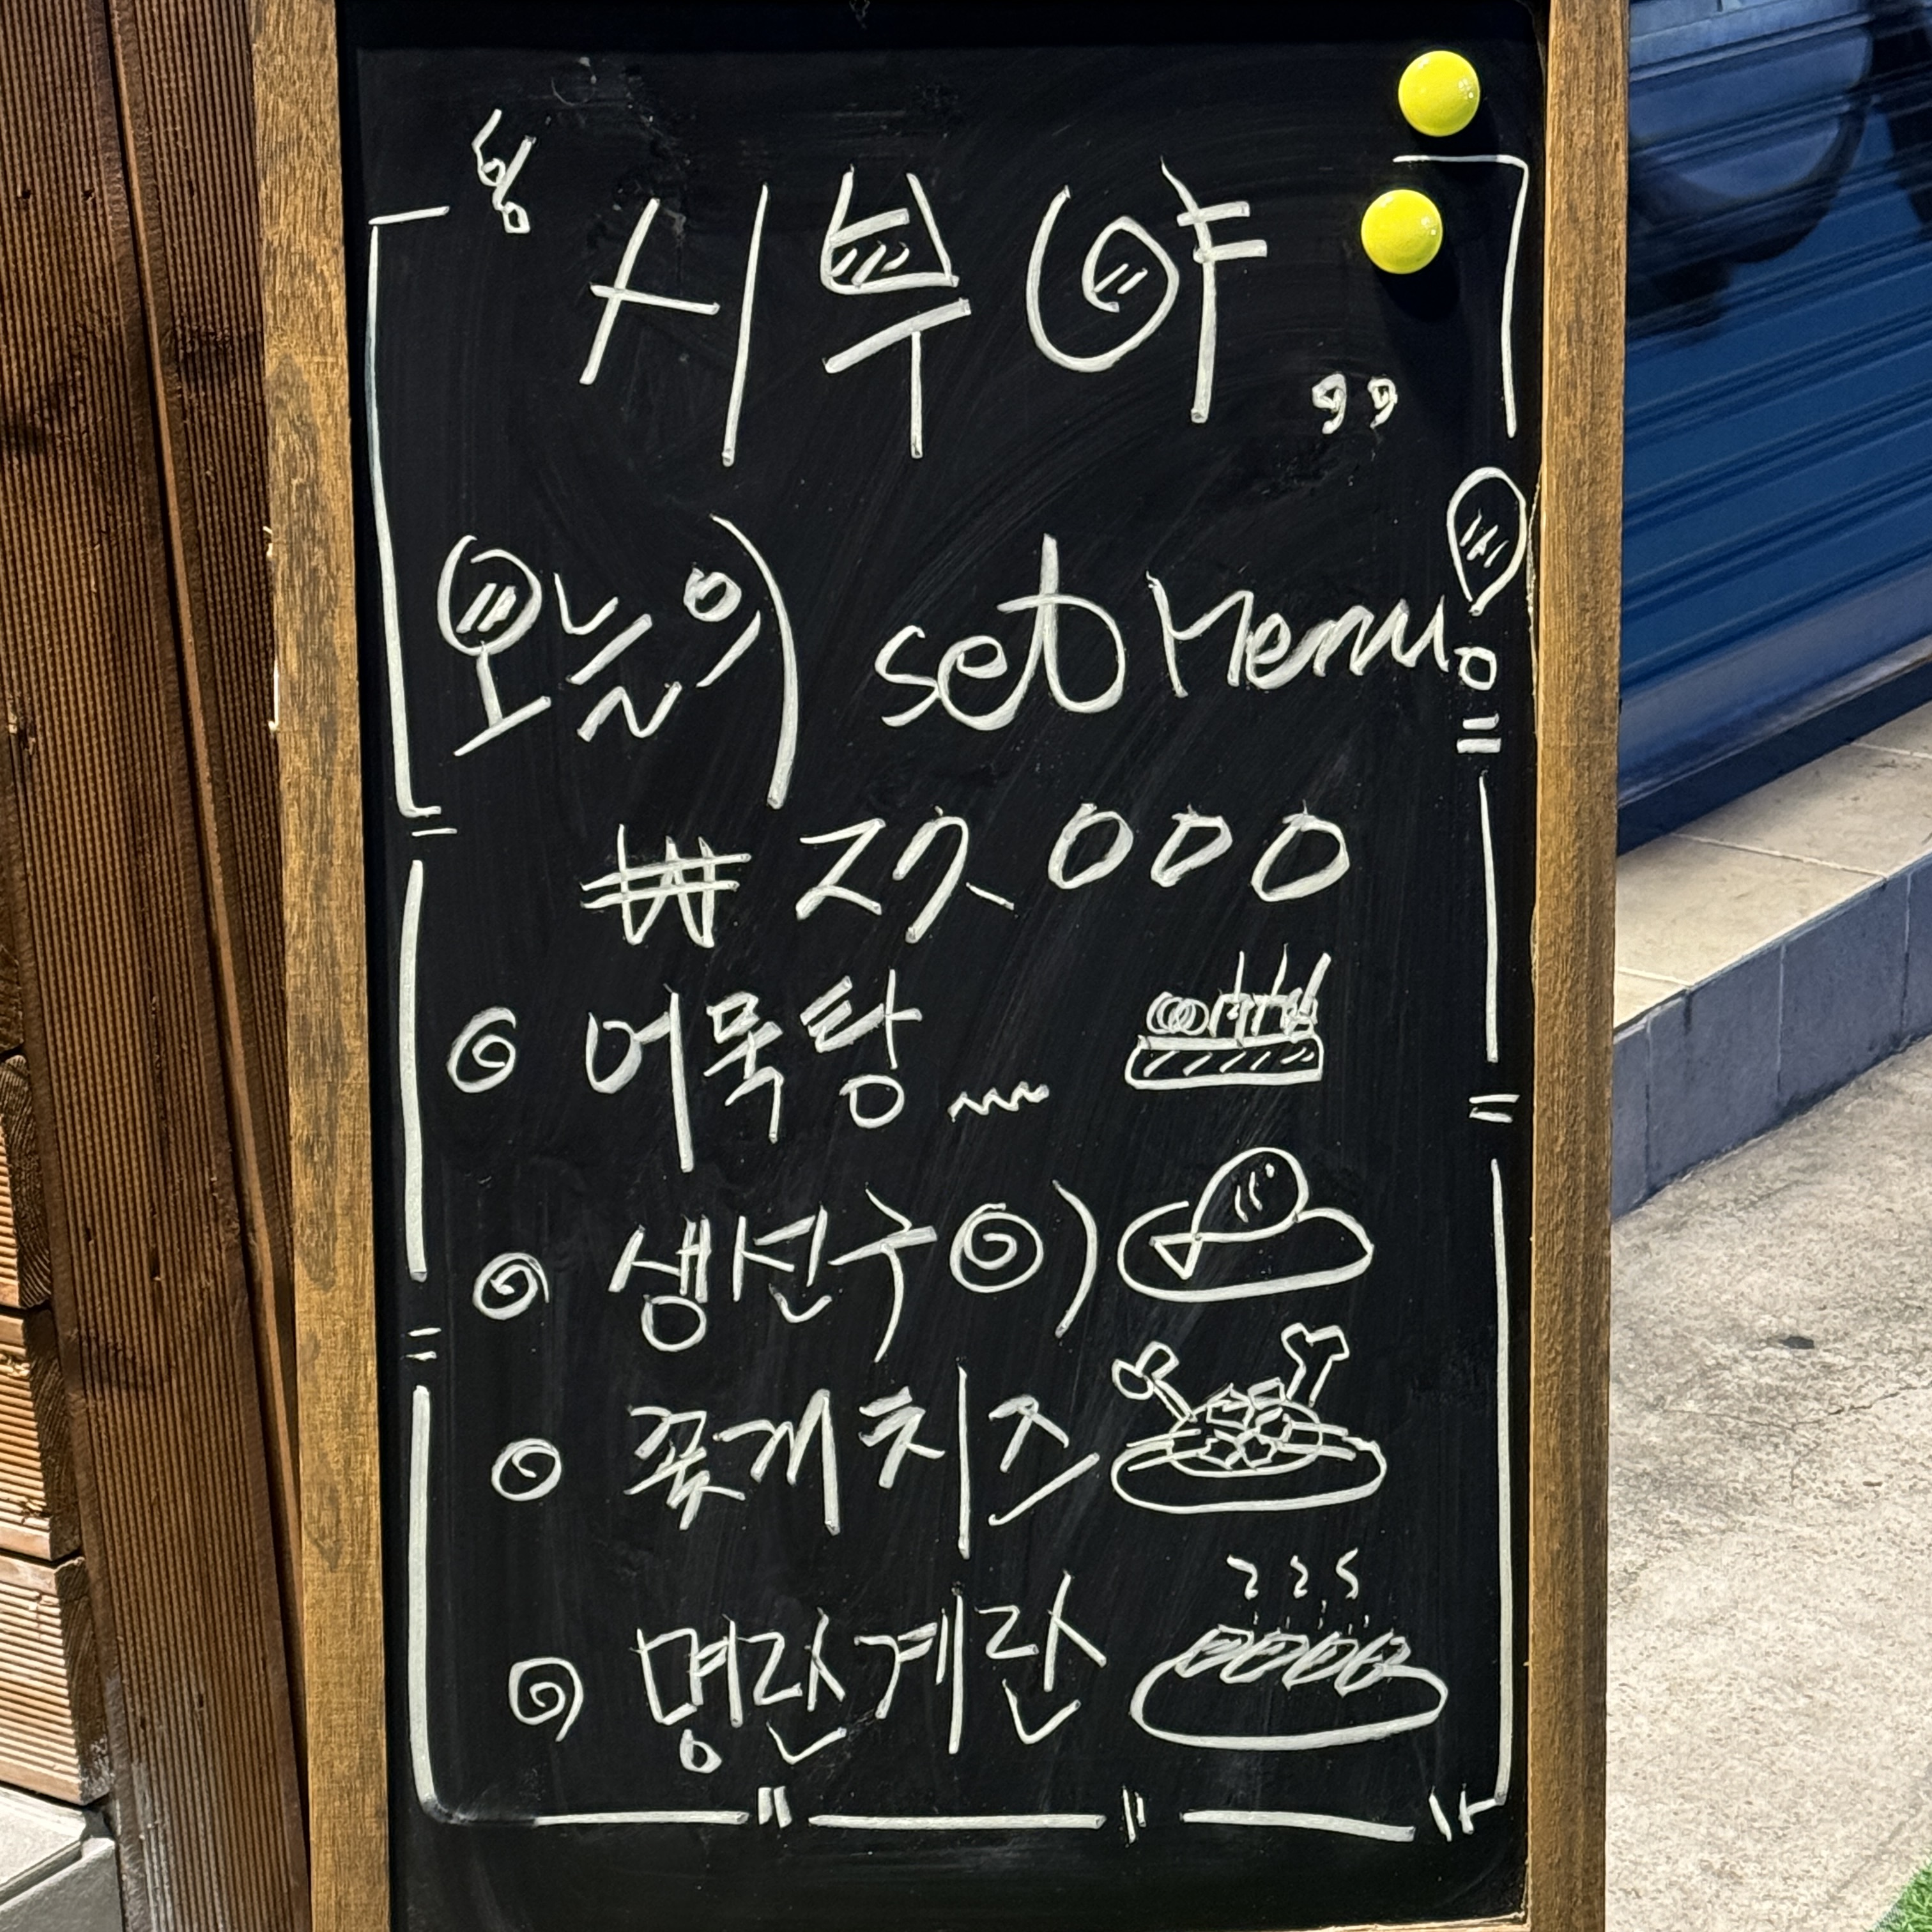 "시부야"
오늘의 set Menu!
₩ 27,000
어묵탕 ~~
생선구이
꽃게치즈
명란계란